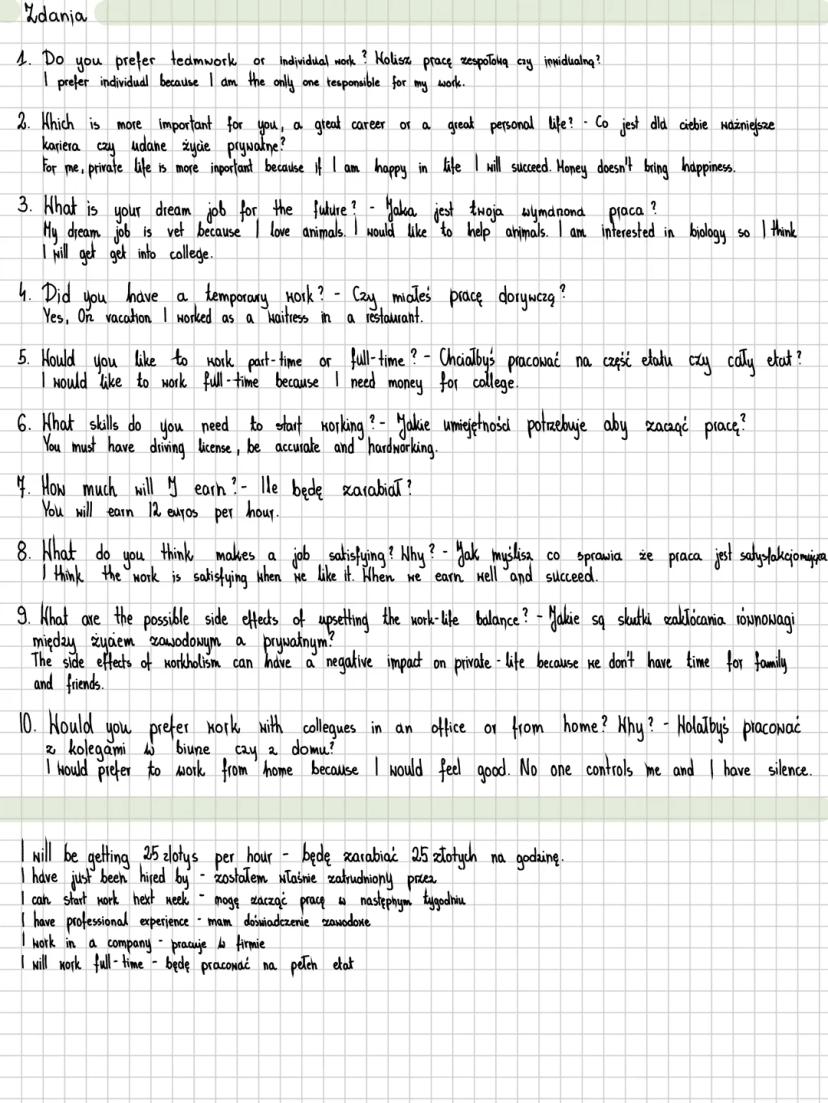 Zdania
1. Do you prefer teamwork or individual work? Wolisz pracę zespołową czy inwidualną?
I prefer individual because I am the only one responsible for my work.
2. Which is more important for you, a great career or a great personal life? - Co jest dla ciebie ważniejsze
kariera czy udane życie prywatne?
For me, private life is more inportant because if I am happy in life I will succeed. Money doesn't bring happiness.
3. What is your dream job for the future? - Jaka jest twoja wymarzona praca?
My dream job is vet because I love animals. I would like to help animals. I am interested in biology so I think
I will get get into college.
4. Did you have a temporary work? - Czy miałeś pracę dorywczą?
Yes, On vacation I worked as a waitress in a restaurant.
5. Would you like to work part-time or full-time? - Chciałbyś pracować na część etatu czy cały etat?
I would like to work full-time because I need money for college.
6. What skills do you need to start working? - Jakie umiejętności potrzebuje aby zacząć pracę?
You must have driving license, be accurate and hardworking.
7. How much will I earn? - Ile będę zarabiał?
You will earn 12 euros per hour.
8. What do you think makes a job satisfying? Why? - Jak myślisz co sprawia że praca jest satysfakcjonująca
I think the work is satisfying when we like it. When we earn well and succeed.
9. What are the possible side effects of upsetting the work-life balance? - Jakie są skutki zakłócania równowagi
między życiem zawodowym a prywatnym?
The side effects of workholism can have a negative impact on private - life because we don't have time for family
and friends.
10. Would you prefer work with collegues in an office or from home? Why? - Wolałbyś pracować
z kolegami w biurze czy z domu?
I would prefer to work from home because I would feel good. No one controls me and I have silence.
I will be getting 25 zlotys per hour - będę zarabiać 25 złotych na godzinę.
I have just been hired by - zostałem właśnie zatrudniony przez
I can start work next week - mogę zacząć pracę w następnym tygodniu
I have professional experience - mam doświadczenie zawodowe
I work in a company - pracuje w firmie
I will work full-time - będę pracować na pełen etat